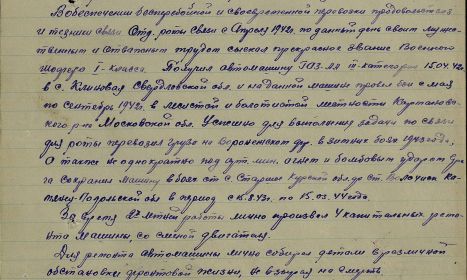 В обеспечении бесперебойной и своевременной перевозки продовольствия
и техники связи Отд. роты Связи с Апреля 1942г. по данный день своим муже-
ственным и отважным трудом снискал прекрасное звание Военного
Шофера I-класса. Получив автомашину ГАЗ-АА III-категории 15.04.42г.
в с. Клиновая Свердловской обл. и на данной машине провел бои с мая
по сентябрь 1942г. в лесистой и болотистой местности
р-на Московской обл. Успешно для выполнения задачи по связи
для роты перевозил грузы на Воронежском фр. в зимних боях 1943 года,
А также неоднократно под арт. мин. огнем и бомбовым ударом вра-
га сохранил машину в боях от с. Старица Курской обл. до ст. Волочиск Ка-
менец-Подольской обл в период с 5.8.43г. по 15.03.44 года.
За время 2х летней работы лично произвел 4 капитальных ремон-
та машины, со сменой двигателя.
Для ремонта автомашины лично собирал детали в различной
обстановке фронтовой жизни, не взирая на